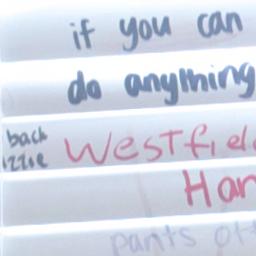 if you can
do anything
back
izzie
Westfiel
Har
pants off